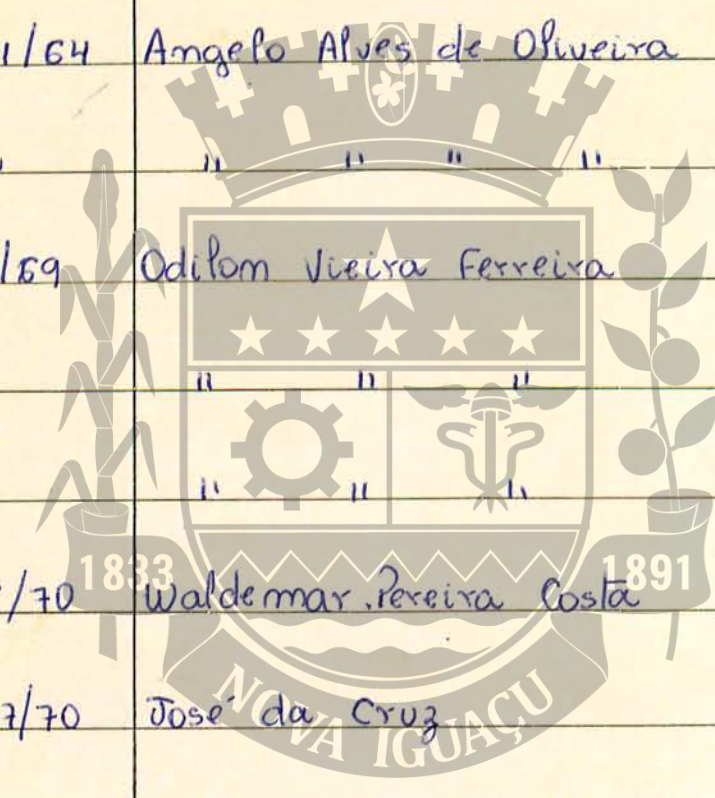 1/64 Angelo Alves de Oliveira
" " " "
/69 Odilom Vieira Ferreira
" " "
" " "
1833 1891
/70 Waldemar Pereira Costa
7/70 José da Cruz
NOVA IGUAÇU